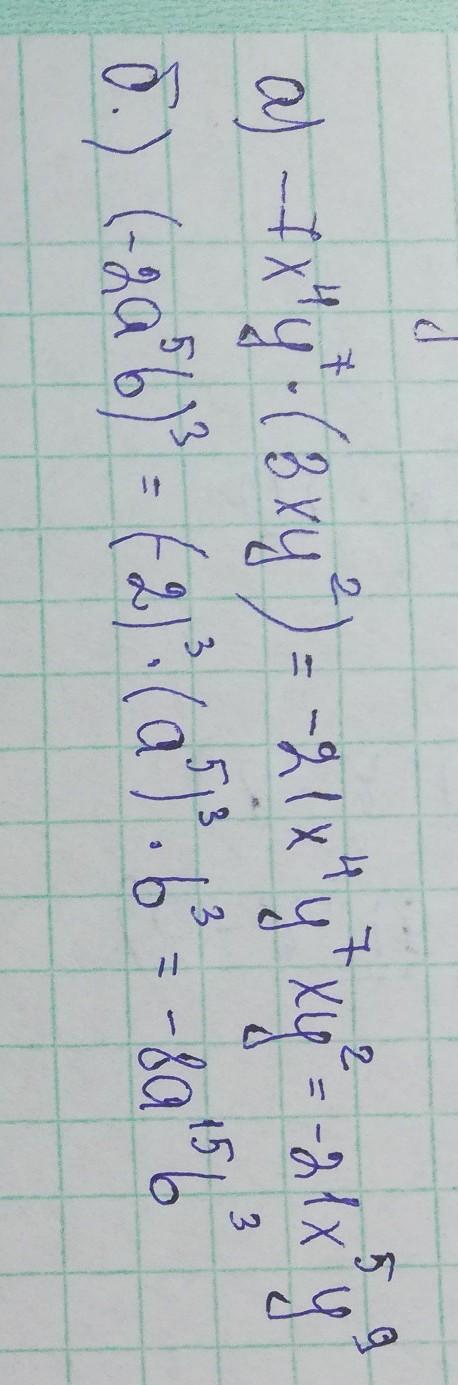 а) -7x⁴y⁷ · (3xy²) = -21x⁴y⁷xy² = -21x⁵y⁹
б.) (-2a⁵b)³ = (-2)³ · (a⁵)³ · b³ = -8a¹⁵b³